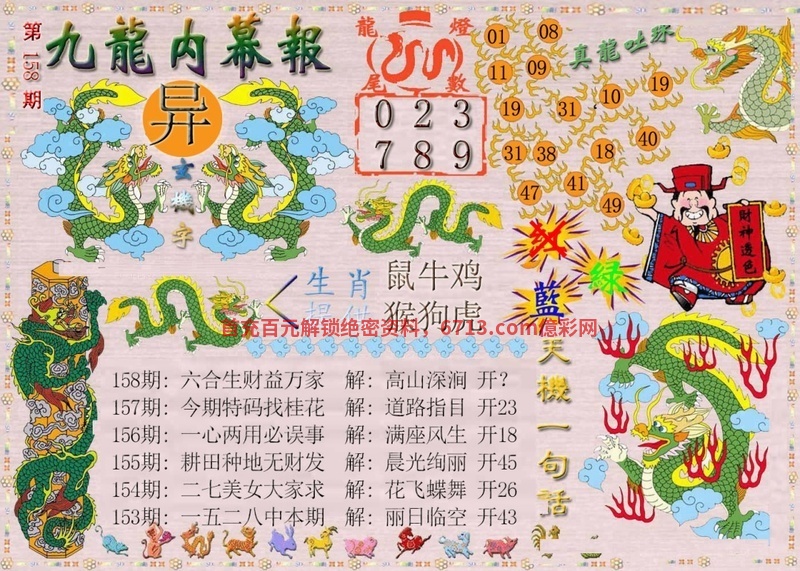 第158期
九龍内幕報
昇
玄機字
龍燈
尾數
0 2 3
7 8 9
01 08
11 09
真龍吐珠
19 31 10 19
31 38 18 40
47 41 49
财神透色
红
绿
藍
生肖
提供
鼠牛鸡
猴狗虎
首充百元解锁绝密资料，6713.com億彩网
天機一句話
158期：六合生财益万家 解：高山深涧 开？
157期：今期特码找桂花 解：道路指目 开23
156期：一心两用必误事 解：满座风生 开18
155期：耕田种地无财发 解：晨光绚丽 开45
154期：二七美女大家求 解：花飞蝶舞 开26
153期：一五二八中本期 解：丽日临空 开43